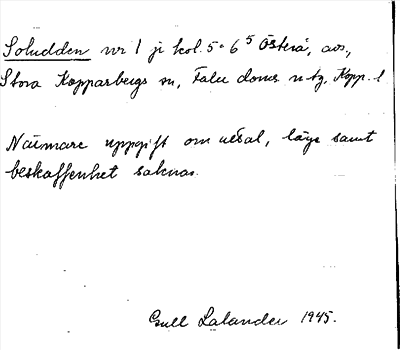 Soludden nr 1 ji kol. 5 o 6⁵ Österå, avs.,
Stora Kopparbergs sn, Falu doms. u tg, Kopp. l
Närmare uppgift om uttal, läge samt
beskaffenhet saknas.
Gull Lalander 1945.